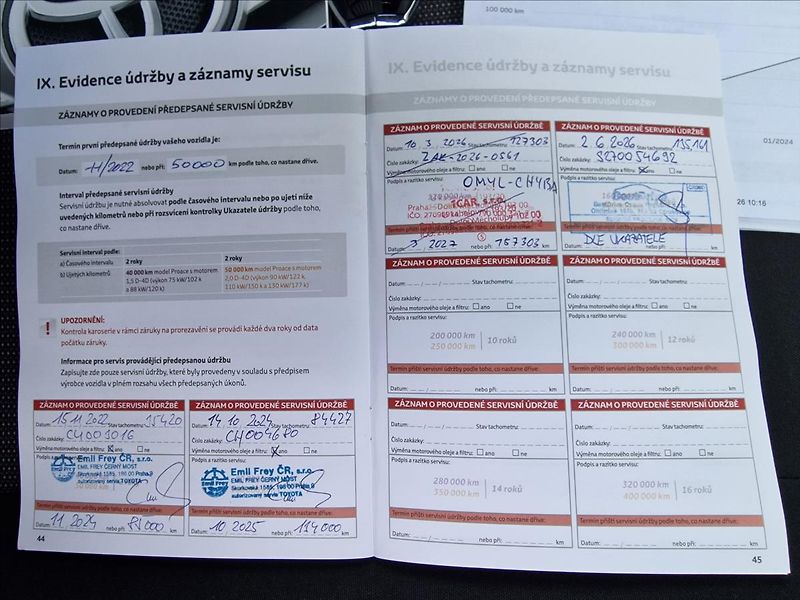 100 000 km
01/2024
26 10:16
IX. Evidence údržby a záznamy servisu
ZÁZNAMY O PROVEDENÍ PŘEDEPSANÉ SERVISNÍ ÚDRŽBY
Termín první předepsané údržby vašeho vozidla je:
Datum: 11/2022 nebo při: 50000 km podle toho, co nastane dříve.
Interval předepsané servisní údržby
Servisní údržbu je nutné absolvovat podle časového intervalu nebo po ujetí níže
uvedených kilometrů nebo při rozsvícení kontrolky Ukazatele údržby podle toho,
co nastane dříve.
Servisní interval podle:
a) Časového intervalu 2 roky 2 roky
b) Ujetých kilometrů 40 000 km model Proace s motorem 50 000 km model Proace s motorem
1,5 D-4D (výkon 75 kW/102 k 2,0 D-4D (výkon 90 kW/122 k,
a 88 kW/120 k) 110 kW/150 k a 130 kW/177 k)
UPOZORNĚNÍ:
Kontrola karoserie v rámci záruky na prorezavění se provádí každé dva roky od data
počátku záruky.
Informace pro servis provádějící předepsanou údržbu
Zapisujte zde pouze servisní údržbu, které byly provedeny v souladu s předpisem
výrobce vozidla v plném rozsahu všech předepsaných úkonů.
ZÁZNAM O PROVEDENÉ SERVISNÍ ÚDRŽBĚ
Datum: 15 11 2022 Stav tachometru: 35420
Číslo zakázky: CH003016
Výměna motorového oleje a filtru: ano ne
Podpis a
Emil Frey ČR, s.r.o.
EMIL FREY ČERNÝ MOST
Skorkovská 1585, 198 00 Praha 9
autorizovaný servis TOYOTA
Termín příští servisní údržby podle toho, co nastane dříve:
Datum: 11. 2024 nebo při: km
44
ZÁZNAM O PROVEDENÉ SERVISNÍ ÚDRŽBĚ
Datum: 14 10 2024 Stav tachometru: 84427
Číslo zakázky: CH004680
Výměna motorového oleje a filtru: ano ne
Podpis a razítko servisu:
Emil Frey ČR, s.r.o.
EMIL FREY ČERNÝ MOST
Skorkovská 1585, 198 00 Praha 9
autorizovaný servis TOYOTA
Termín příští servisní údržby podle toho, co nastane dříve:
Datum: 10. 2025 nebo při: km
IX. Evidence údržby a záznamy servisu
ZÁZNAMY O PROVEDENÍ PŘEDEPSANÉ SERVISNÍ ÚDRŽBY
ZÁZNAM O PROVEDENÉ SERVISNÍ ÚDRŽBĚ
Datum: 10 3. 2026 Stav tachometru: 127303
Číslo zakázky: ZAK-2026-0561
Výměna motorového oleje a filtru: ano ne
Podpis a razítko servisu: OMYL-CHYBA
1CAR, s.r.o.
Termín příští servisní údržby podle toho, co nastane dříve:
Datum: 3 2027 nebo při: 157303 km
ZÁZNAM O PROVEDENÉ SERVISNÍ ÚDRŽBĚ
Datum: 2. 6 2026 Stav tachometru: 135161
Číslo zakázky: S270054692
Výměna motorového oleje a filtru: ano ne
Podpis a razítko servisu:
Termín příští servisní údržby podle toho, co nastane dříve:
Datum: DLE UKAZATELE km
ZÁZNAM O PROVEDENÉ SERVISNÍ ÚDRŽBĚ
Datum: Stav tachometru:
Číslo zakázky:
Výměna motorového oleje a filtru: ano ne
Podpis a razítko servisu:
200 000 km
250 000 km 10 roků
Termín příští servisní údržby podle toho, co nastane dříve:
Datum: nebo při: km
ZÁZNAM O PROVEDENÉ SERVISNÍ ÚDRŽBĚ
Datum: Stav tachometru:
Číslo zakázky:
Výměna motorového oleje a filtru: ano ne
Podpis a razítko servisu:
240 000 km
300 000 km 12 roků
Termín příští servisní údržby podle toho, co nastane dříve:
Datum: nebo při: km
ZÁZNAM O PROVEDENÉ SERVISNÍ ÚDRŽBĚ
Datum: Stav tachometru:
Číslo zakázky:
Výměna motorového oleje a filtru: ano ne
Podpis a razítko servisu:
280 000 km
350 000 km 14 roků
Termín příští servisní údržby podle toho, co nastane dříve:
Datum: nebo při: km
ZÁZNAM O PROVEDENÉ SERVISNÍ ÚDRŽBĚ
Datum: Stav tachometru:
Číslo zakázky:
Výměna motorového oleje a filtru: ano ne
Podpis a razítko servisu:
320 000 km
400 000 km 16 roků
Termín příští servisní údržby podle toho, co nastane dříve:
Datum: nebo při: km
45